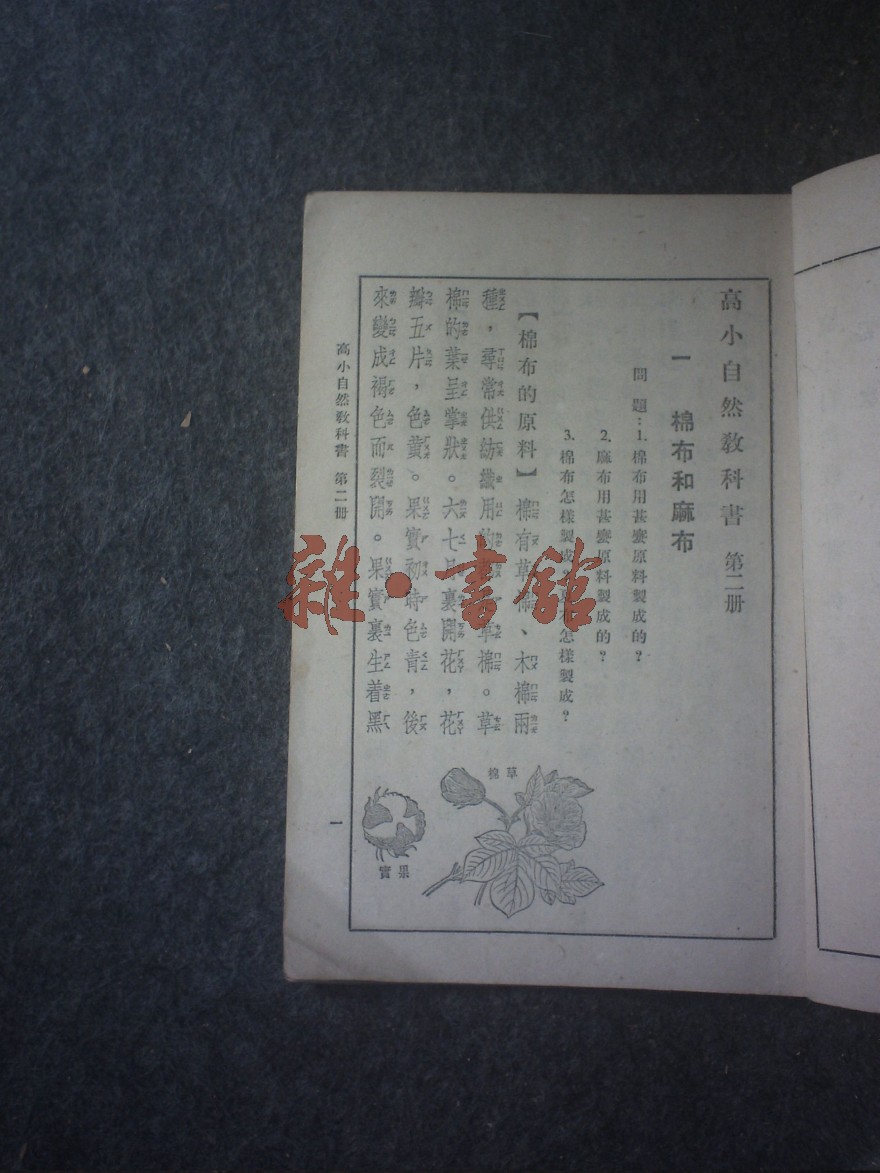 高小自然教科書 第二册
一 棉布和麻布
問題：1. 棉布用甚麼原料製成的？
2. 麻布用甚麼原料製成的？
3. 棉布怎樣製成？麻布怎樣製成？
【棉布的原料】 棉有草棉、木棉兩
種，尋常供紡織用的 草棉。草
棉的葉呈掌狀。六七月裏開花，花
瓣五片，色黄。果實初時色青，後
來變成褐色而裂開。果實裏生着黑
草棉
果實
高小自然教科書 第二册
一
雜·書館